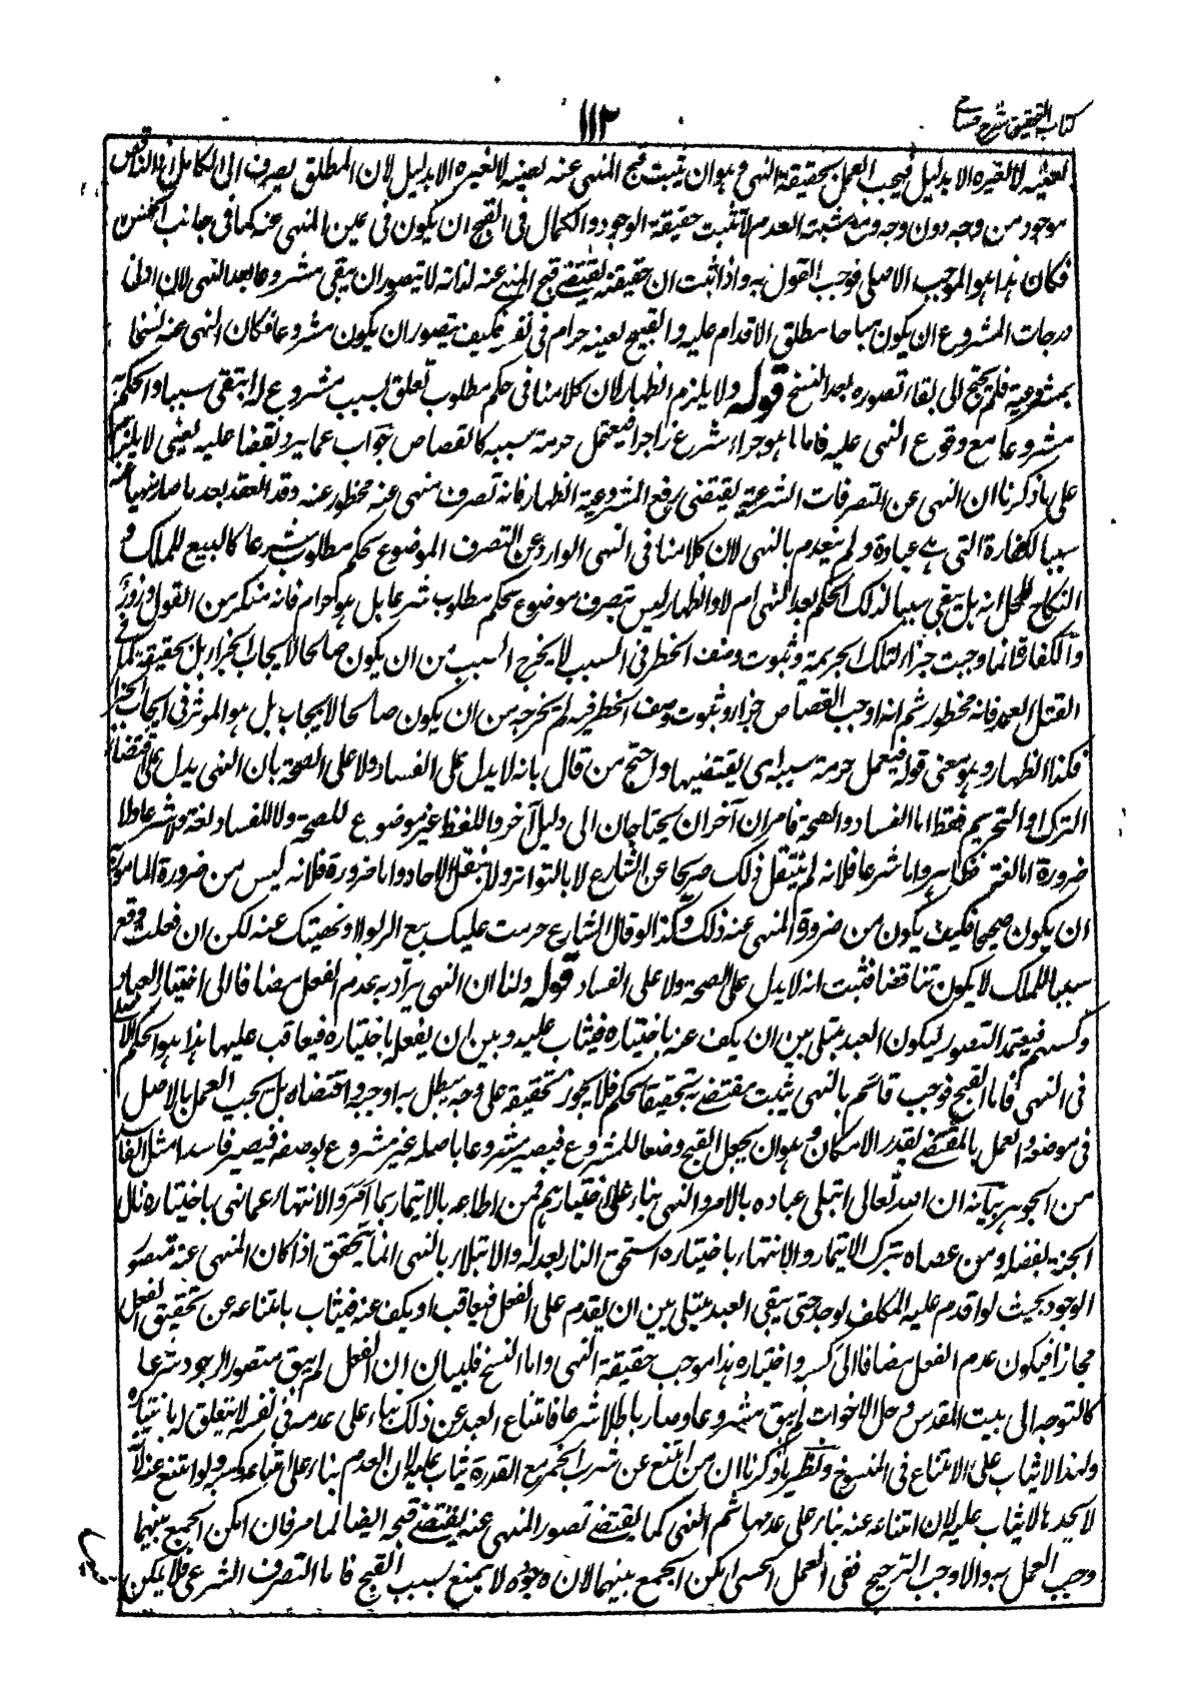 كتاب التحقيق شرح حسامى
١١٢
لعينه لا لغيره الا بدليل فيجب العمل بحقيقة النهى وهو ان يثبت قبح المنهى عنه لعينه لا لغيره الا بدليل لان المطلق يصرف الى الكامل اذ الناقص
موجود من وجه دون وجه ومع شبهة العدم لا تثبت حقيقة الوجود والكمال فى القبح ان يكون فى عين المنهى عنه كما فى جانب الحسن
فكان هذا هو الموجب الاصلى فوجب القول به واذا ثبت ان حقيقته يقتضى قبح المنهى عنه لذاته لا يتصور ان يبقى مشروعا بعد النهى لان ادنى
درجات المشروع ان يكون مباحا مطلق الاقدام عليه والقبيح لعينه حرام فى نفسه فكيف يتصور ان يكون مشروعا فكان النهى عنه نسخا
بمشروعيته فلم يحتج الى بقاء تصوره بعد النسخ قوله ولا يلزم الظهار لان كلامنا فى حكم مطلوب تعلق بسبب مشروع له ايبقى سببا والحكم به
مشروعا مع وقوع النهى عليه فاما ما هو جزاء شرع زاجرا فيعتمل حرمة سببه كالقصاص جواب عما يرد نقضا عليه يعنى لا يلزم
على ما ذكرنا ان النهى عن التصرفات الشرعية يقتضى رفع المشروعية الظهار فانه تصرف منهى عنه محظور عنه وقد انعقد بعد ما صار منهيا عنه
سببا للكفارة التى هى عبادة ولم ينعدم بالنهى لان كلامنا فى النهى الوارد عن التصرف الموضوع لحكم مطلوب شرعا كالبيع للملك و
النكاح للحل انه بل يبقى سببا لذلك الحكم بعد النهى ام لا والظهار ليس بتصرف موضوع لحكم مطلوب شرعا بل هو حرام فانه منكر من القول وزور
والكفارة انما وجبت جزاء لتلك الجريمة وثبوت وصف الحظر فى السبب لا يخرج السبب من ان يكون صالحا لايجاب الجزاء بل يحقيقه كما فى
القتل العمد فانه محظور ثم انه اوجب القصاص جزاء وثبوت وصف الحظر فيه لم يخرجه من ان يكون صالحا لايجاب بل هو الموثر فى ايجاب الجزاء
فكذا الظهار وهو معنى قوله فيعتمل حرمة سببه اى يقتضيها واحتج من قال بانه لا يدل على الفساد ولا على الصحة بان النهى يدل على اقتضاء
الترك او التحريم فقط اما الفساد والصحة فامران آخران يحتاجان الى دليل آخر واللفظ غير موضوع للصحة ولا للفساد لغة ولا شرعا ولا
ضرورة اما لغة فظاهر واما شرعا فلانه لم ينتقل ذلك صريحا عن الشارع لا بالتواتر ولا بنقل الآحاد واما ضرورة فلانه ليس من ضرورة المامور به
ان يكون صحيحا فكيف يكون من ضرورة المنهى عنه ذلك وكذا لو قال الشارع حرمت عليك بيع الربوا ونهيتك عنه لكن ان فعلت وقع
سببا للملك لا يكون تناقضا فثبت انه لا يدل على الصحة ولا على الفساد قوله ولنا ان النهى يراد به عدم الفعل مضافا الى اختيار العباد
وكسبهم فيعتمد التصور ليكون العبد مبتلى بين ان يكف عنه باختياره فيثاب عليه وبين ان يفعله باختياره فيعاقب عليها هذا هو الحكم الاصلى
فى النهى فاما القبح فوجب قائم بالنهى يثبت مقتضى به تحقيقا لحكمه فلا يجوز تحقيقه على وجه يبطل به ما اوجبه واقتضاه بل يجب العمل بالاصل
فى موضعه والعمل بالمقتضى بقدر الامكان وهو ان يجعل القبح وصفا للمشروع فيصير مشروعا باصله غير مشروع بوصفه فيصير فاسدا مثل الفاسد
من الجوهر بيانه ان الله تعالى ابتلى عباده بالامر والنهى بناء على اختيارهم فمن اطاعه بالايتمار بما امر والانتهاء عما نهى باختياره نال
الجنة بفضله ومن عصاه بترك الايتمار والانتهاء باختياره استحق النار بعدله والابتلاء بالنهى انما يتحقق اذا كان المنهى عنه متصور
الوجود بحيث لو اقدم عليه المكلف لوجد حتى يبقى العبد مبتلى بين ان يقدم على الفعل فيعاقب او يكف عنه فيثاب بامتناعه عن تحقيق الفعل
مجازا فيكون عدم الفعل مضافا الى كسبه واختياره هذا موجب حقيقة النهى واما النسخ فلبيان ان الفعل لم يبق متصور الوجود شرعا
كالتوجه الى بيت المقدس وحل الاخوات لم يبق مشروعا وصار باطلا شرعا فامتناع العبد عن ذلك بناء على عدمه فى نفسه لا يتعلق له باختياره
ولهذا لا يثاب على الامتناع فى المنسوخ ونظير ما ذكرنا ان من امتنع عن شرب الخمر مع القدرة يثاب عليه لان العدم بناء على امتناعه وكسبه ولو امتنع عنه لانه
لا يجدها لا يثاب عليه لان امتناعه عنه بناء على عدمها ثم النهى كما يقتضى تصور المنهى عنه يقتضى قبحه ايضا لما مر فان امكن الجمع بينهما
وجب العمل به والا وجب الترجيح ففى العمل الحسى امكن الجمع بينهما لان وجوده لا يمتنع بسبب القبح فاما التصرف الشرعى فلا يمكن